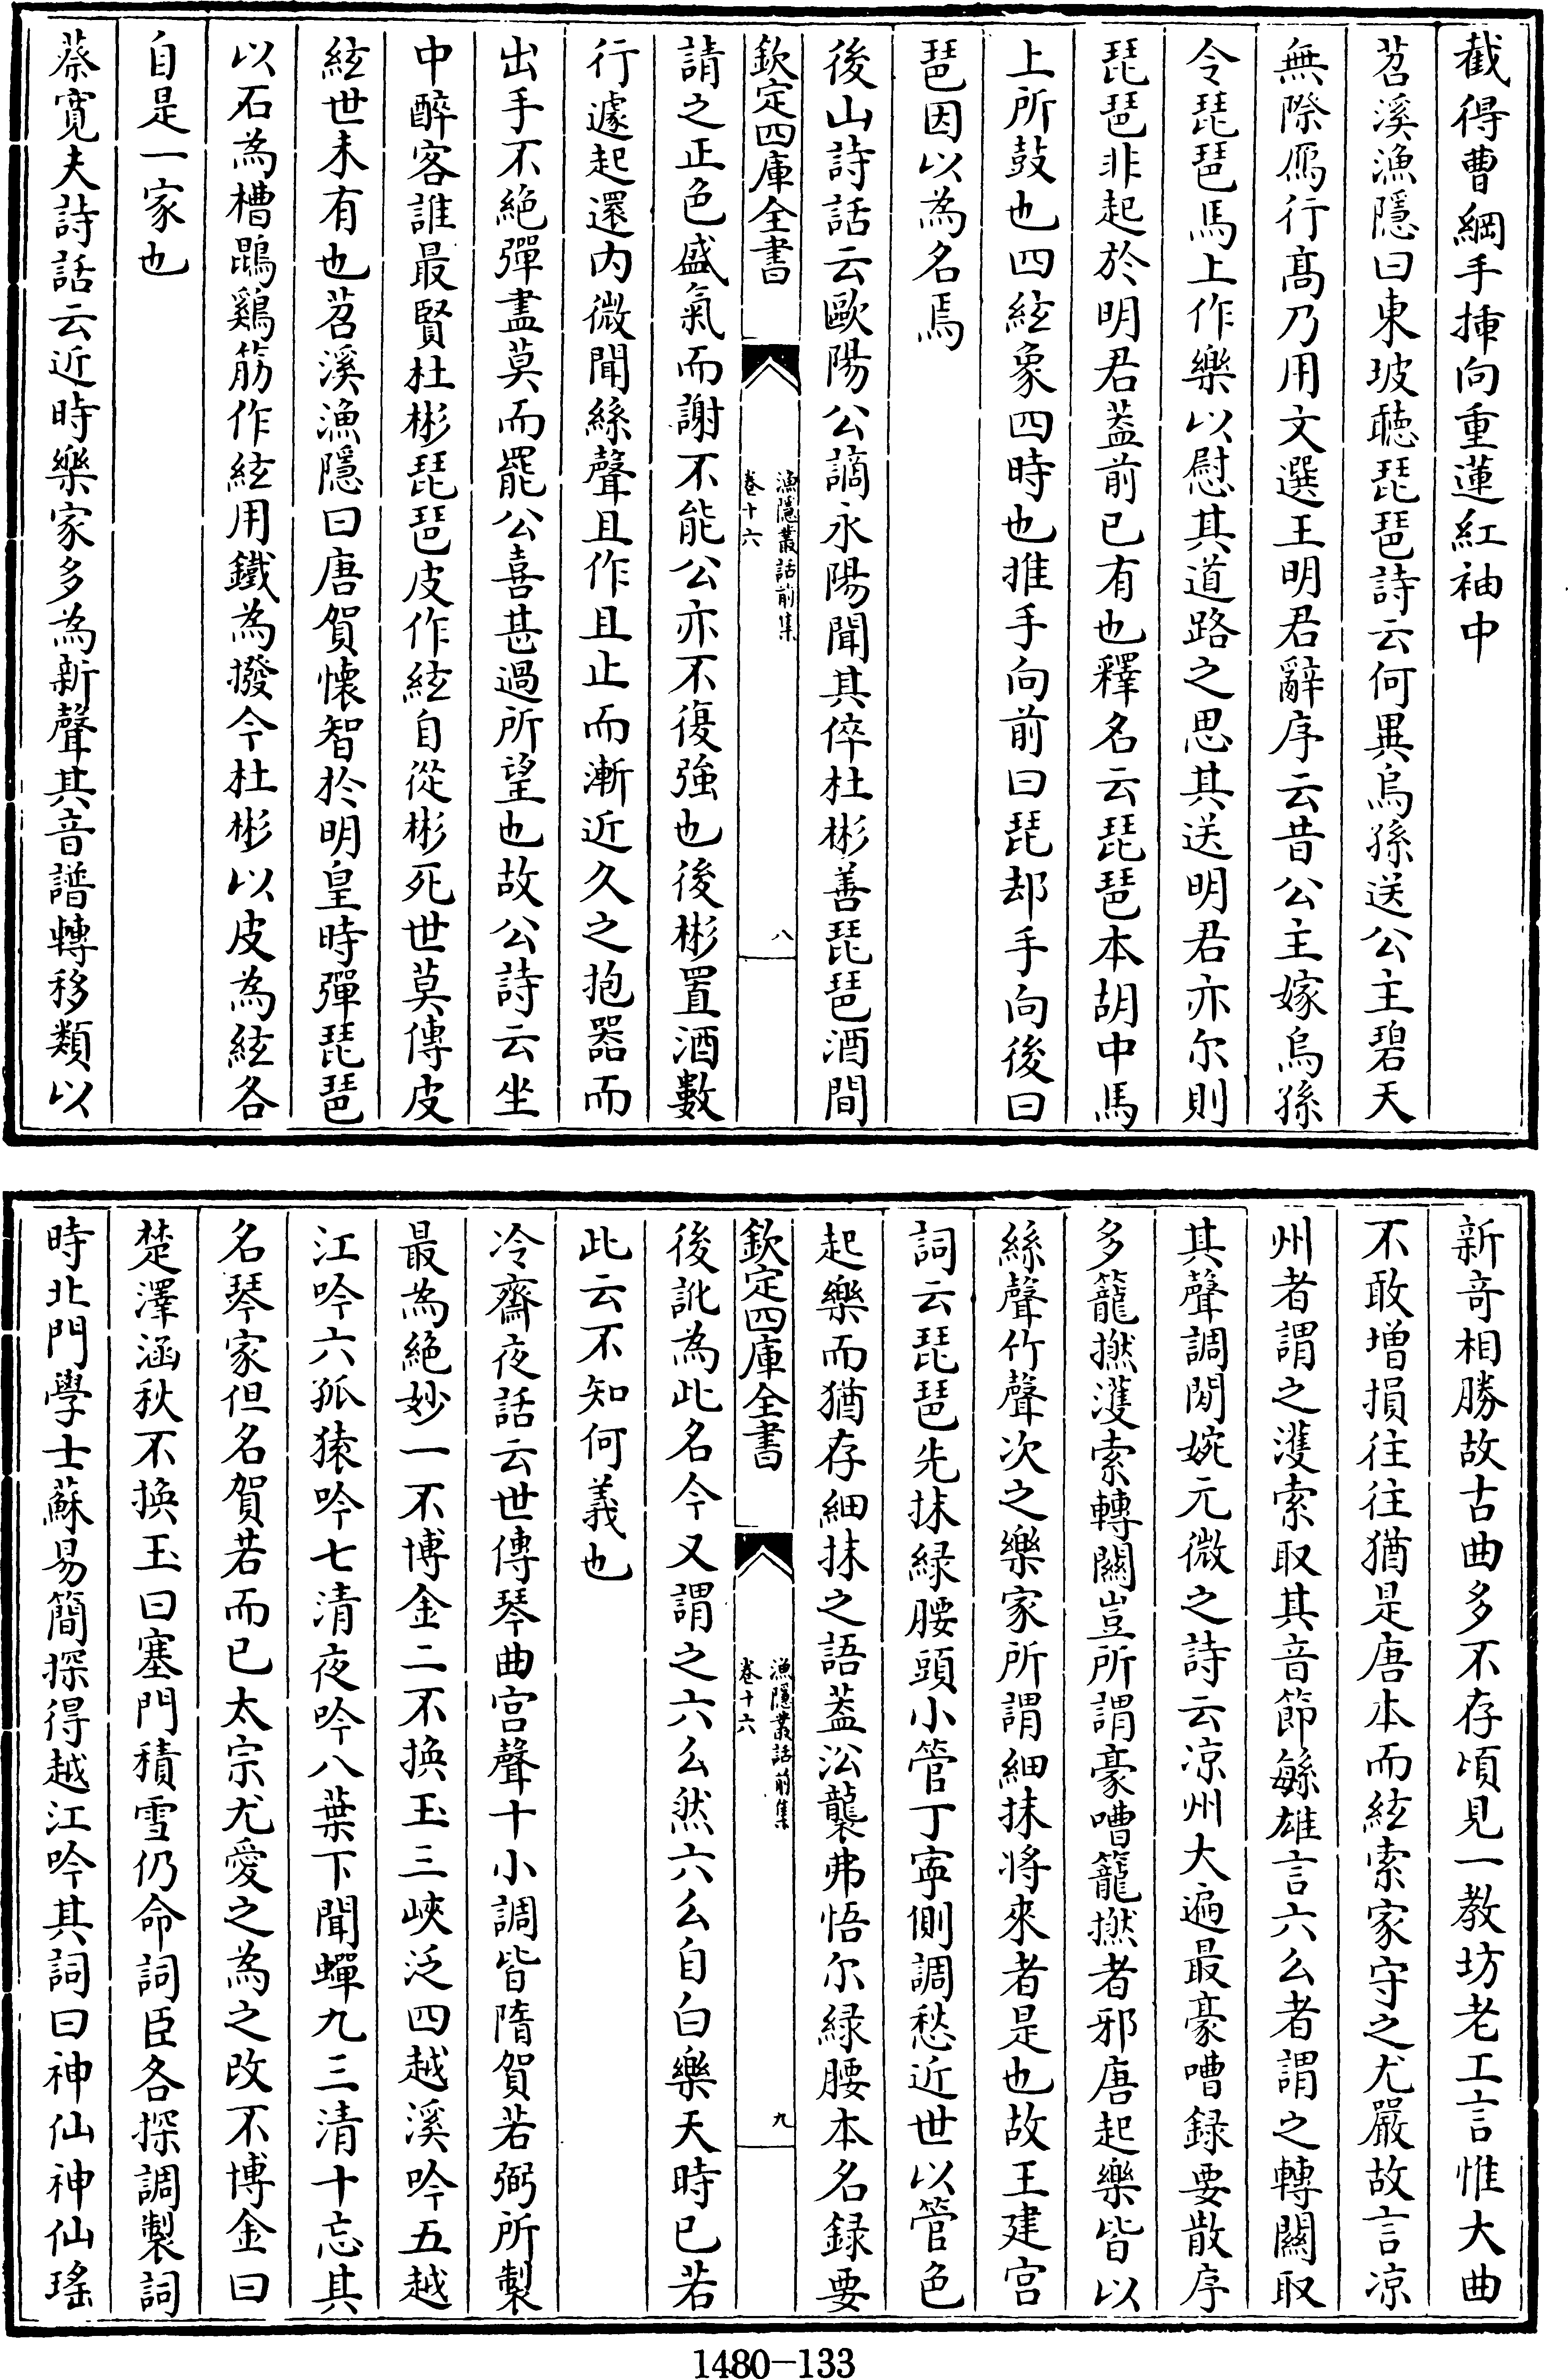 截得曹綱手揷向重蓮紅袖中
苕溪漁隱曰東坡聽琵琶詩云何異烏孫送公主碧天
無際鴈行髙乃用文選王明君辭序云昔公主嫁烏孫
令琵琶馬上作樂以慰其道路之思其送明君亦尔則
琵琶非起於明君葢前已有也釋名云琵琶本胡中馬
上所鼓也四絃象四時也推手向前曰琵却手向後曰
琶因以為名焉
後山詩話云歐陽公謫永陽聞其倅杜彬善琵琶酒間
欽定四庫全書
漁隱叢話前集
卷十六
八
請之正色盛氣而謝不能公亦不復強也後彬置酒數
行遽起還内微聞絲聲且作且止而漸近久之抱器而
出手不絶彈盡莫而罷公喜甚過所望也故公詩云坐
中醉客誰最賢杜彬琵琶皮作絃自從彬死世莫傳皮
絃世未有也苕溪漁隱曰唐賀懐智於明皇時彈琵琶
以石為槽鵾鷄筋作絃用鐵為撥今杜彬以皮為絃各
自是一家也
蔡寛夫詩話云近時樂家多為新聲其音譜轉移類以
新竒相勝故古曲多不存頃見一教坊老工言惟大曲
不敢増損往往猶是唐本而絃索家守之尤嚴故言凉
州者謂之濩索取其音節緐雄言六么者謂之轉關取
其聲調閒婉元微之詩云凉州大遍最豪嘈録要散序
多籠撚濩索轉關豈所謂豪嘈籠撚者邪唐起樂皆以
絲聲竹聲次之樂家所謂細抹将來者是也故王建宫
詞云琵琶先抹緑腰頭小管丁寧側調愁近世以管色
起樂而猶存細抹之語葢㳂襲弗悟尔緑腰本名録要
欽定四庫全書
漁隱叢話前集
卷十六
九
後訛為此名今又謂之六么然六么自白樂天時已若
此云不知何義也
冷齋夜話云世傳琴曲宫聲十小調皆隋賀若弼所製
最為絶妙一不博金二不換玉三峽泛四越溪吟五越
江吟六孤猿吟七清夜吟八葉下聞蟬九三清十忘其
名琴家但名賀若而已太宗尤愛之為之改不博金曰
楚澤涵秋不換玉曰塞門積雪仍命詞臣各探調製詞
時北門學士蘇易簡探得越江吟其詞曰神仙神仙瑤
1480-133